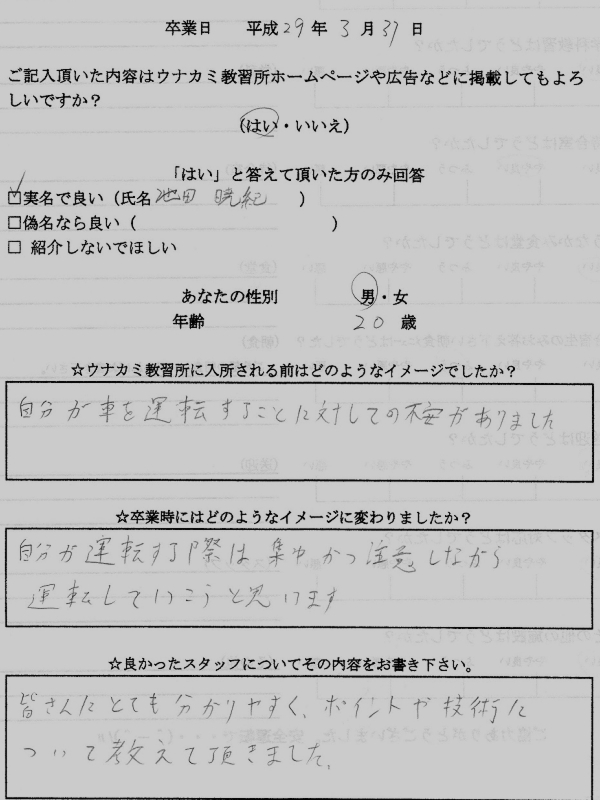 卒業日　平成29年3月31日
ご記入頂いた内容はウナカミ教習所ホームページや広告などに掲載してもよろ
しいですか？
（はい・いいえ）
「はい」と答えて頂いた方のみ回答
☑実名で良い（氏名 池田 暁紀　）
□偽名なら良い（　）
□ 紹介しないでほしい
あなたの性別　男・女
年齢　20 歳
☆ウナカミ教習所に入所される前はどのようなイメージでしたか？
自分が車を運転することに対しての不安がありました
☆卒業時にはどのようなイメージに変わりましたか？
自分が運転する際は集中かつ注意しながら
運転して行こうと思います
☆良かったスタッフについてその内容をお書き下さい。
皆さんにとても分かりやすく、ポイントや技術に
ついて教えて頂きました。